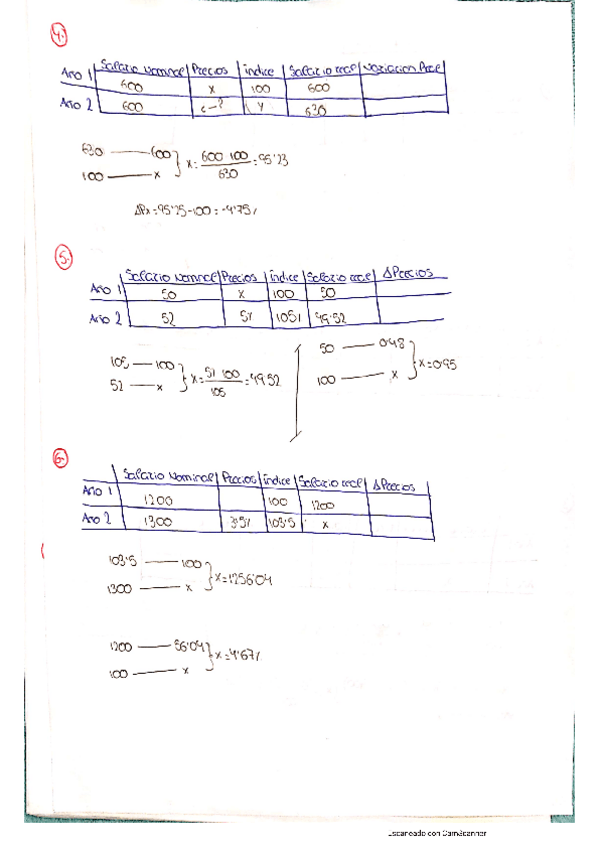 4.
Salario Nominal Precios índice Salario real Variación Prec
Año 1 600 x 100 600
Año 2 600 ¿-? y 630
630 600
100 x
x = 600 100 / 630 = 95'23
ΔPx = 95'25 - 100 = -4'75%
5.
Salario Nominal Precios Índice Salario real ΔPrecios
Año 1 50 x 100 50
Año 2 52 5% 105% 49.52
105 100
52 x
x = 52 100 / 105 = 49.52
50 0'48
100 x
x = 0'95
6.
Salario Nominal Precios Índice Salario real ΔPrecios
Año 1 1200 100 1200
Año 2 1300 3'5% 103'5 x
103'5 100
1300 x
x = 1256'04
1200 56'04
100 x
x = 4'67%
Escaneado con CamScanner